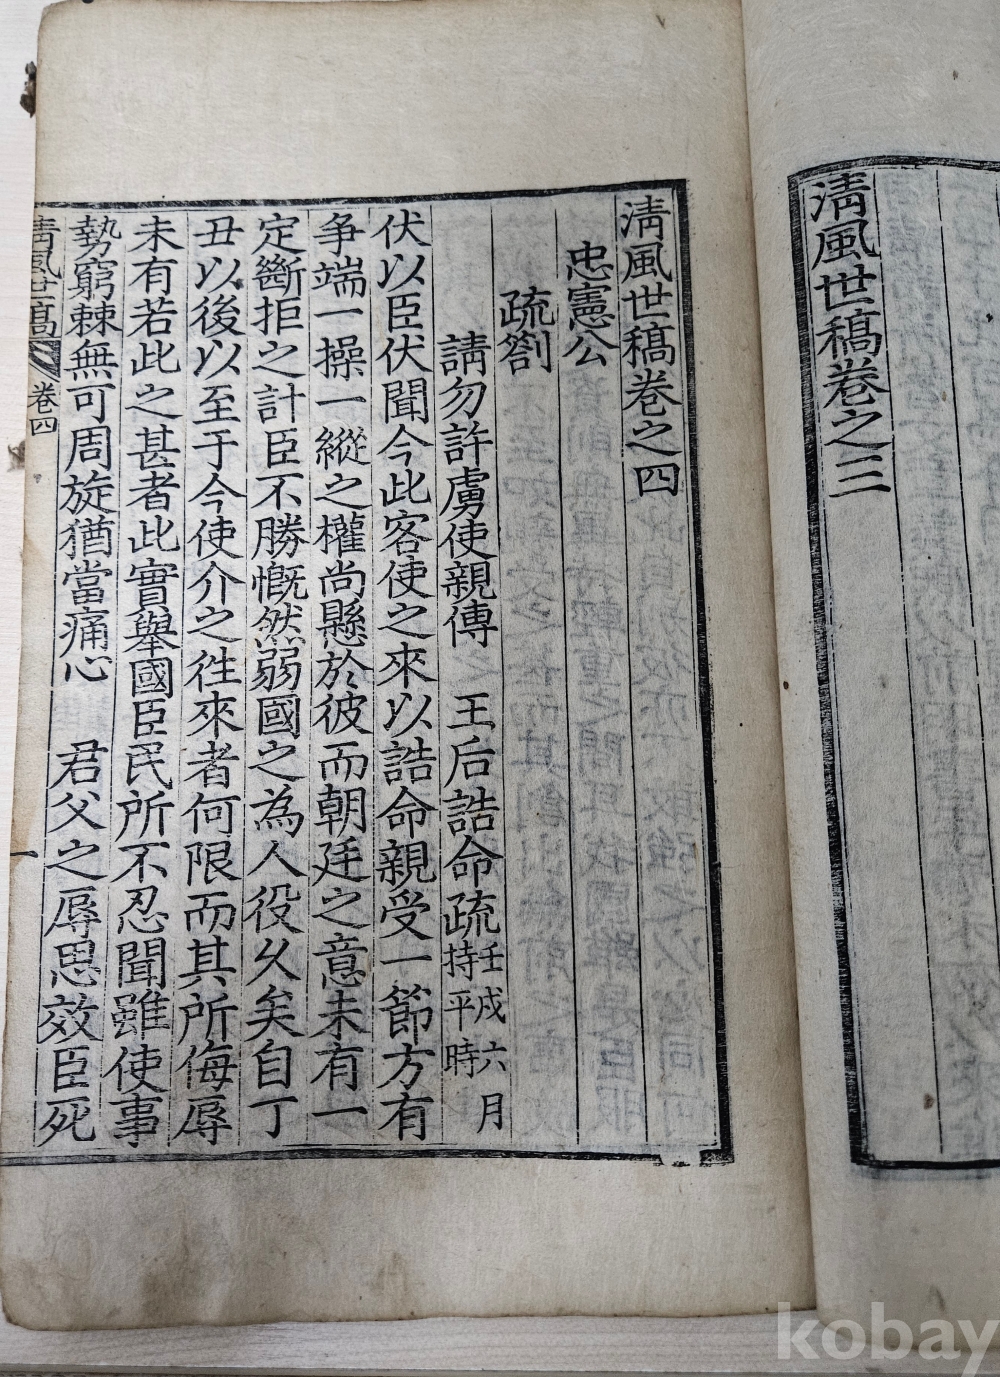 淸風世稿卷之三
淸風世稿卷之四
忠憲公
疏箚
請勿許虜使親傳 王后誥命疏 壬戌六月 持平時
伏以臣伏聞今此客使之來以誥命親受一節方有
爭端一操一縱之權尚懸於彼而朝廷之意未有一
定斷拒之計臣不勝慨然弱國之為人役久矣自丁
丑以後以至于今使介之往來者何限而其所侮辱
未有若此之甚者此實舉國臣民所不忍聞雖使事
勢窮棘無可周旋猶當痛心 君父之辱思效臣死
淸風世稿 卷四 一
kobay